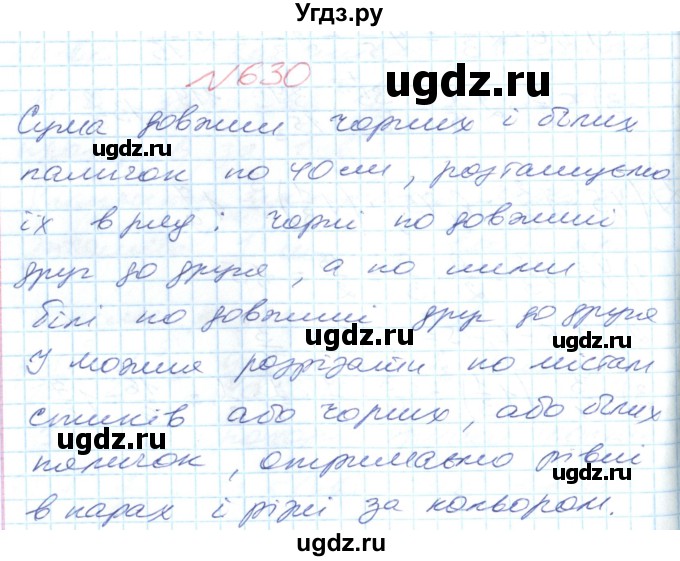 Угдз.ру
№630
ugdz.ru
Сума довжин чорних і білих
ugdz.ru
паличок по 40 см, розташуємо
їх в ряд: чорні по довжині
ugdz.ru
друг до друга, а по ними
білі по довжині друг до друга
ugdz.ru
І можна розрізати по містам
стиків або чорних, або білих
ugdz.ru
паличок, отримаємо рівні
ugdz.ru
в парах і різні за кольором.
ugdz.ru